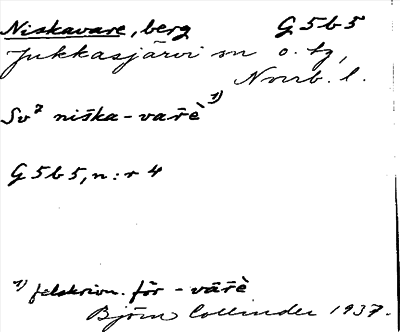 Niskavare, berg G5b5
Jukkasjärvi sn o. tg,
Norrb. l.
Sv⁷ niška-vařḕ ¹⁾
G5b5, n:r 4
¹⁾ felskrivn. för -vāřè
Björn Collinder 1937.